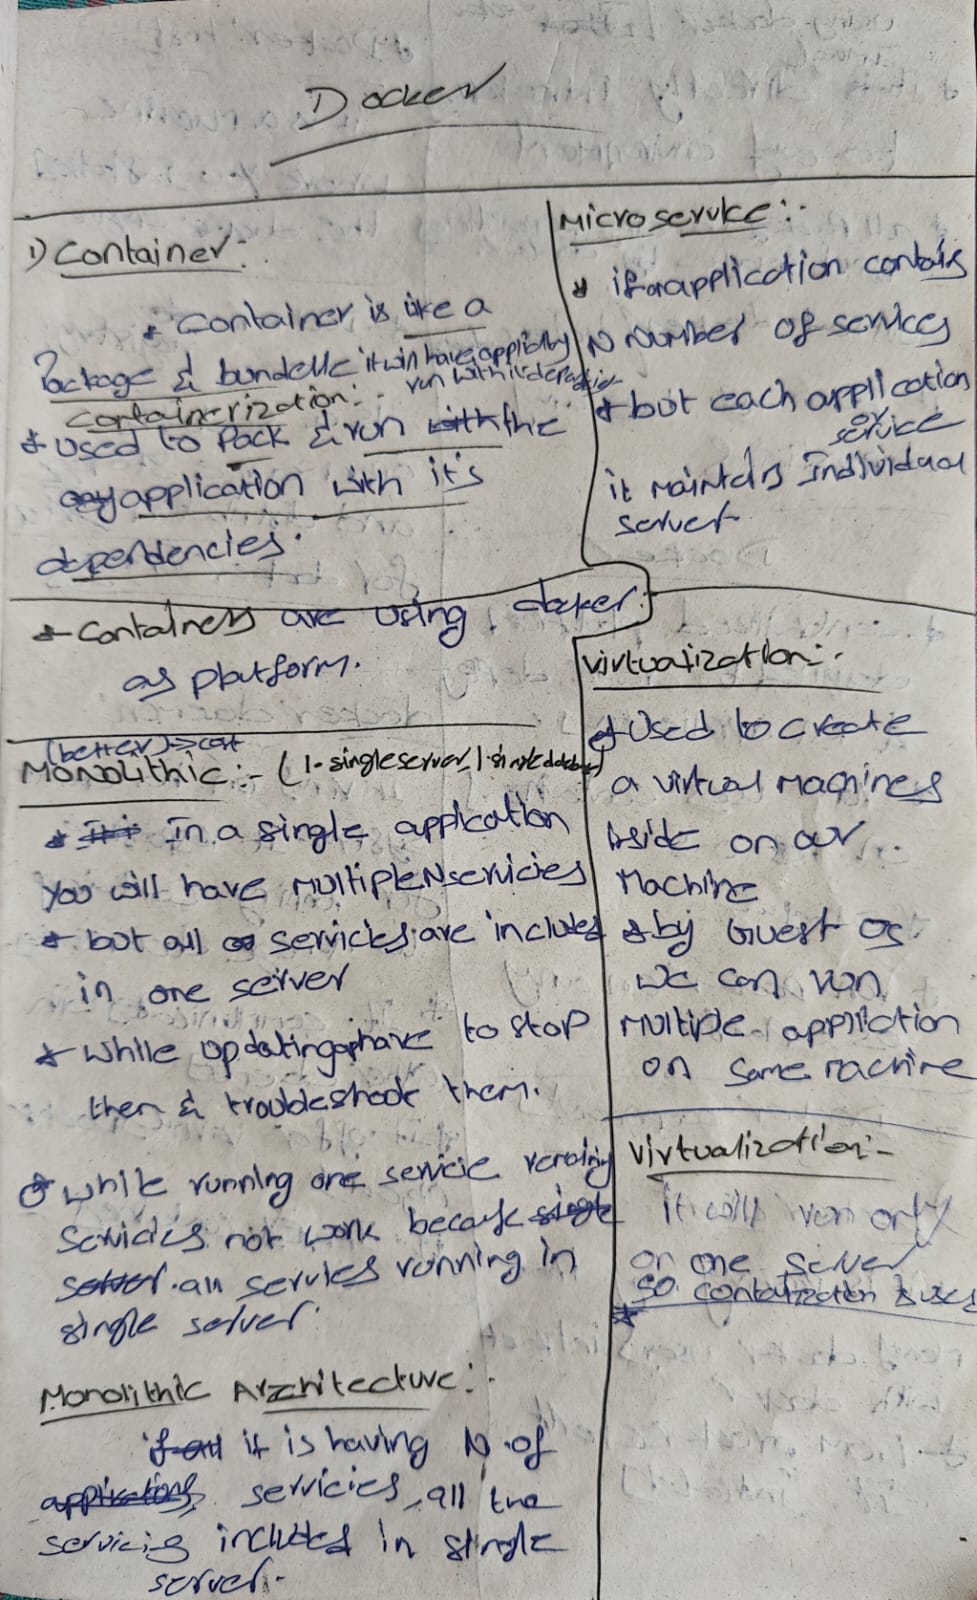 Docker
1) Container:-
* Container is like a
Package & bundelle it will have application
run with it dependencies
Containerization:-
* Used to Pack & run with the
any application with it's
dependencies.
* Containers are using docker
as platform.
(better) => cost
Monolithic:- (1-single server, 1 single database)
* In a single application
you will have Multiple N servicies
* but all servicies are includes
in one server
* while updating have to stop
them & troubleshoot them.
* while running one servicie
servicies not work because single
server. all servies running in
single server.
Monolithic Arzhitecture:-
if all it is having N of
applications servicies, all the
servicies included in single
server.
Microservice:-
* if application contains
N Number of services
* but each application
service
it maintains Individual
server
virtualization:-
* Used to create
a virtual Machines
inside on our
Machine
* by Guest os
we can run
Multiple application
on same machine
Virtualization:-
it will run only
on one server
so
*